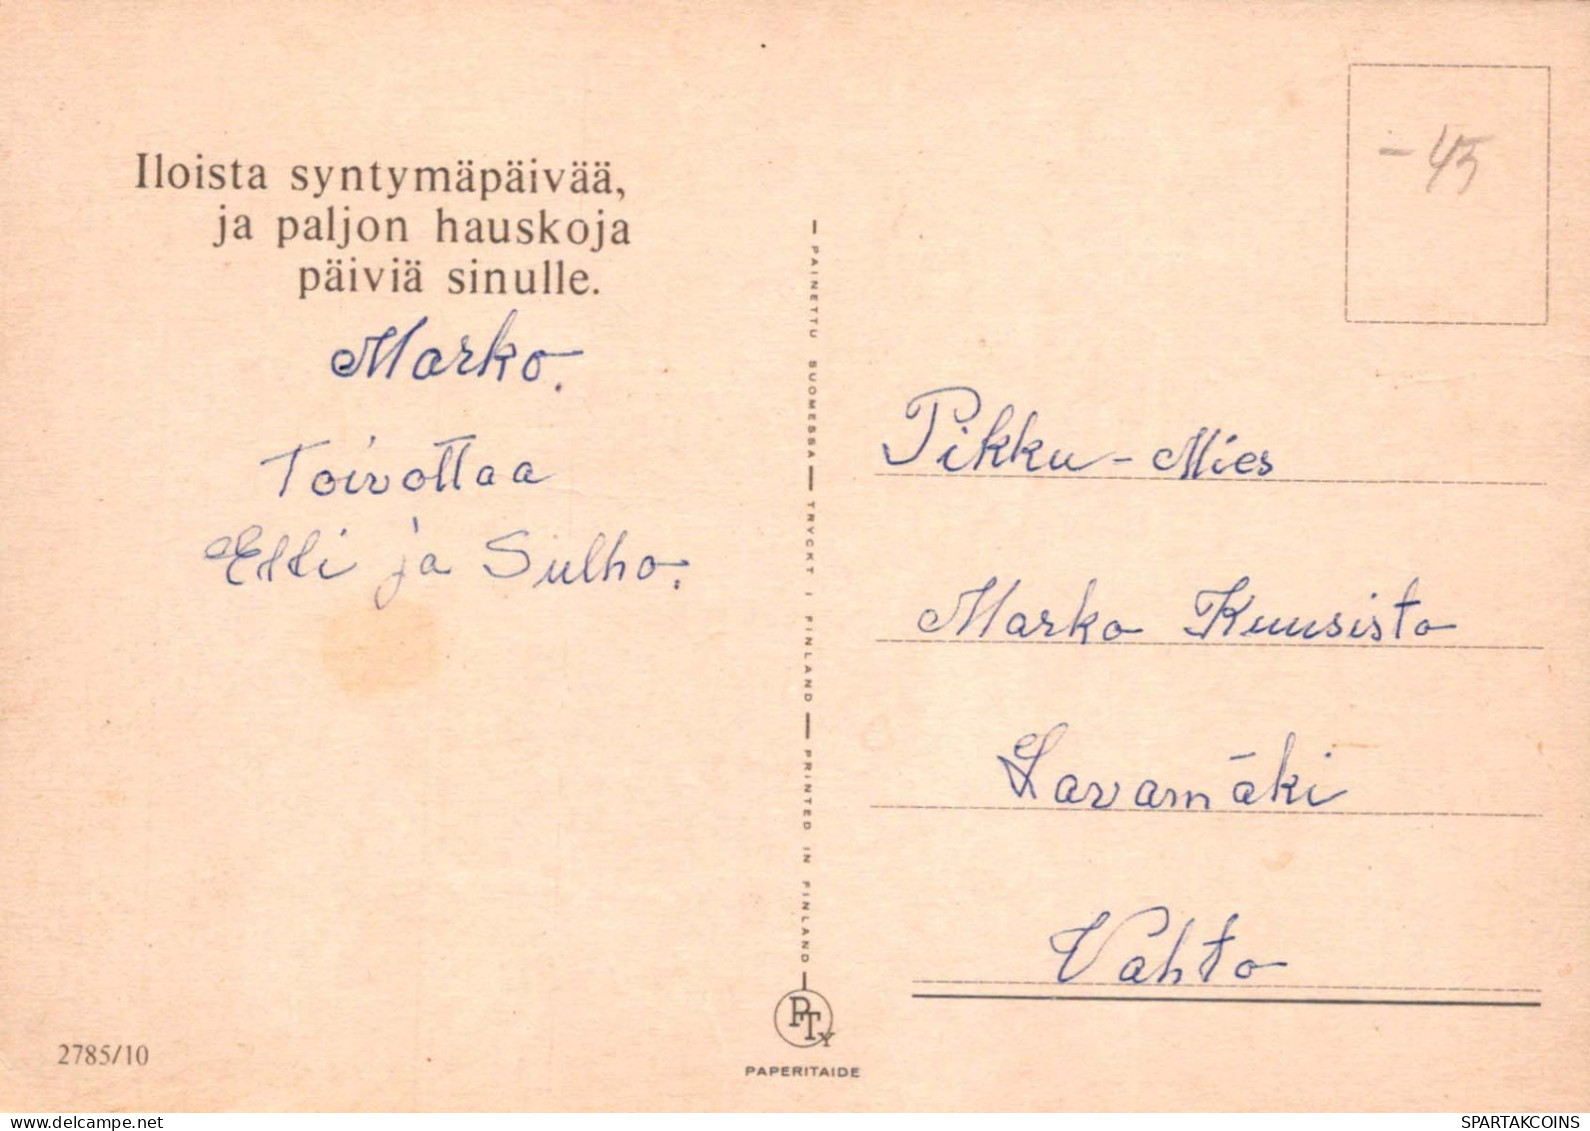 Iloista syntymäpäivää,
ja paljon hauskoja
päiviä sinulle.
Marko.
Toivottaa
Elli ja Sulho.
2785/10
PAINETTU SUOMESSA — TRYCKT I FINLAND — PRINTED IN FINLAND
PTY
PAPERITAIDE
-45
Pikku-Mies
Marko Kuusisto
Lavamäki
Vahto
www.delcampe.net
SPARTAKCOINS